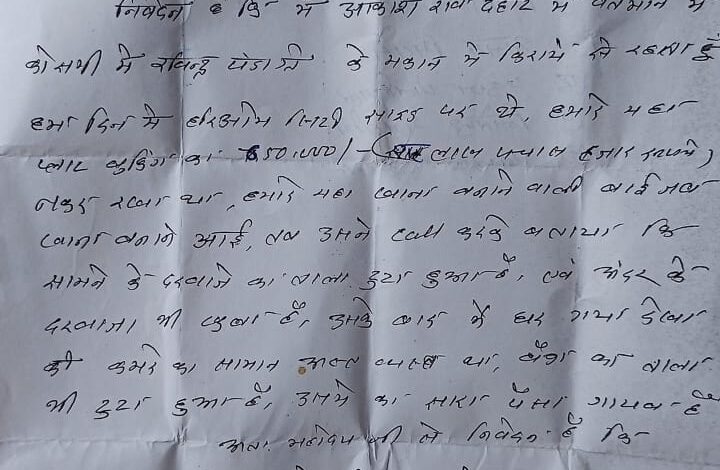 निवेदन है कि मैं आकाश राव देहाट में वर्तमान में
कोसमी में रविन्द्र के मकान में किराये से रहता हूँ
हम दिन में हरिओम सिटी साइड पर थे, हमारे यहा
प्लाट बुकिंग का 650,000/- ( लाख पचास हजार रूपये)
नकद रखा था, हमारे यहा खाना बनाने वाली बाई जब
खाना बनाने आई, तब उसने call करके बताया कि
सामने के दरवाजे का ताला टुटा हुआ है, एवं अंदर के
दरवाजा भी खुला है, उसके बाद में घर गया देखा
की कमरे का सामान अस्त व्यस्त था, का ताला
भी टुटा हुआ है, उसमे का सारा पैसा गायब है
अतः महोदय जी से निवेदन है कि